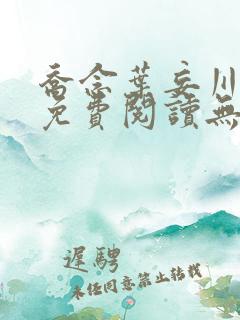 喬念葉妄川
免費閱讀無
遲騁
未经同意禁止转载